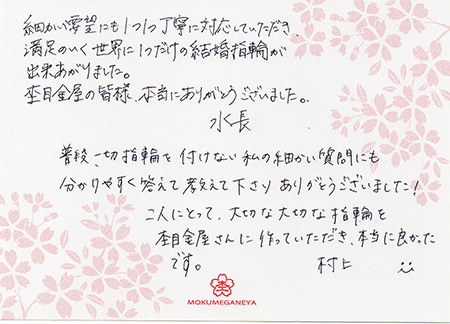 細かい要望にも1つ1つ丁寧に対応していただき、
満足のいく世界に1つだけの結婚指輪が
出来あがりました。
杢目金屋の皆様、本当にありがとうございました。
水長
普段、一切指輪を付けない私の細かい質問にも
分かりやすく答えて教えて下さり ありがとうございました!
二人にとって、大切な大切な指輪を
杢目金屋さんに作っていただき、本当に良かった
です。
村上
MOKUMEGANEYA